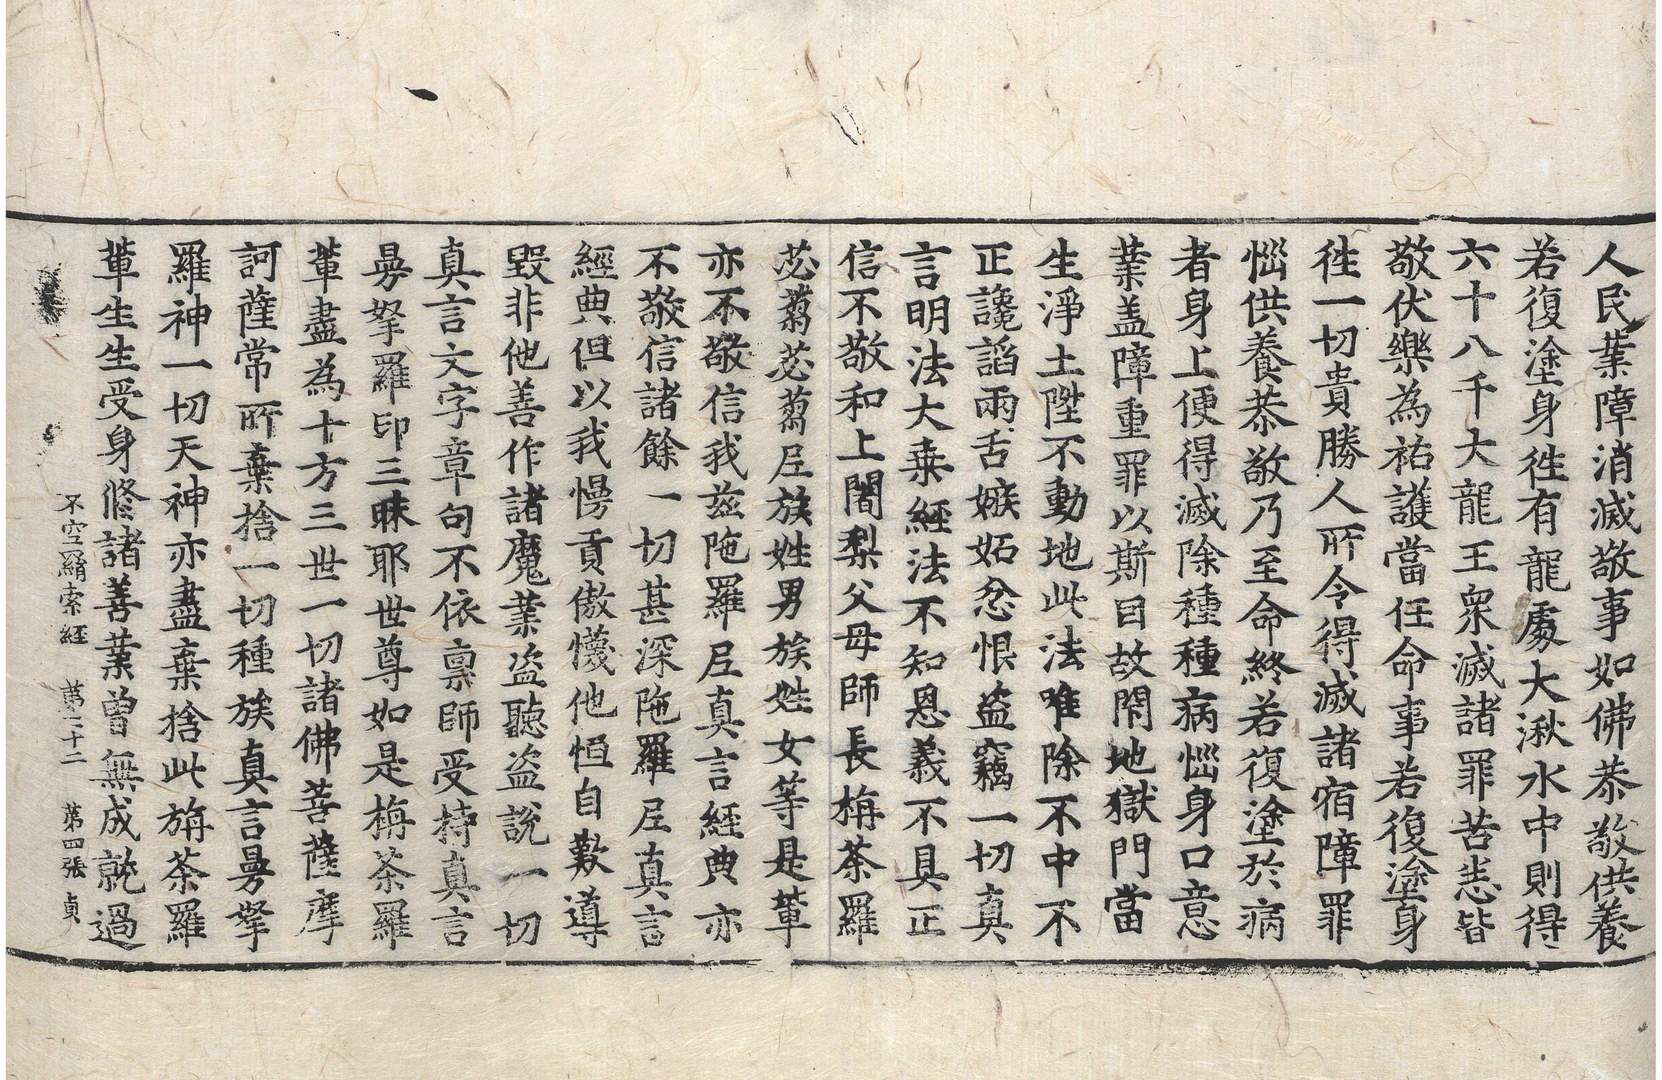 人民業障消滅敬事如佛恭敬供養
若復塗身徃有龍處大湫水中則得
六十八千大龍王衆滅諸罪苦悉皆
敬伏樂為祐護當任命事若復塗身
徃一切貴勝人所令得滅諸宿障罪
惱供養恭敬乃至命終若復塗於病
者身上便得滅除種種病惱身口意
業盖障重罪以斯目故閇地獄門當
生淨土陞不動地此法唯除不中不
正讒謟兩舌嫉妬忿恨盗竊一切真
言明法大乗經法不知恩義不具正
信不敬和上闍梨父母師長旃茶羅
苾蒭苾蒭尼族姓男族姓女等是輩
亦不敬信我兹陁羅尼真言經典亦
不敬信諸餘一切甚深陁羅尼真言
經典但以我慢貢傲懱他恒自歎導
毀非他善作諸魔業盗聽盗說一切
真言文字章句不依禀師受持真言
曼拏羅印三昧耶世尊如是旃茶羅
輩盡為十方三世一切諸佛菩薩摩
訶薩常所棄捨一切種族真言曼拏
羅神一切天神亦盡棄捨此旃茶羅
輩生生受身修諸善業曾無成就過
不空羂索経　第二十二　第四張　貞